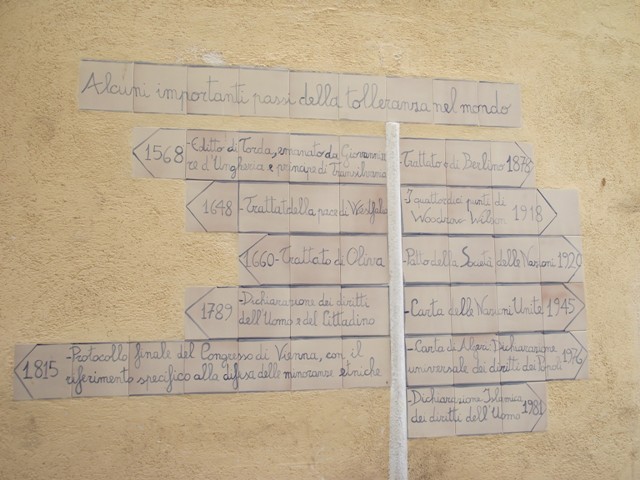 Alcuni importanti passi della tolleranza nel mondo
1568 -Editto di Torda, emanato da Giovanni
re d'Ungheria e principe di Transilvania
1648 -Trattati della pace di Westfalia
1660-Trattato di Oliva
1789 -Dichiarazione dei diritti
dell'Uomo e del Cittadino
1815 -Protocollo finale del Congresso di Vienna, con il
riferimento specifico alla difesa delle minoranze etniche
-Trattato di Berlino 1878
-I quattordici punti di
Woodrow Wilson 1918
-Patto della Società delle Nazioni 1920
-Carta delle Nazioni Unite 1945
-Carta di Algeri-Dichiarazione
universale dei diritti dei Popoli 1976
-Dichiarazione Islamica
dei diritti dell'Uomo 1981